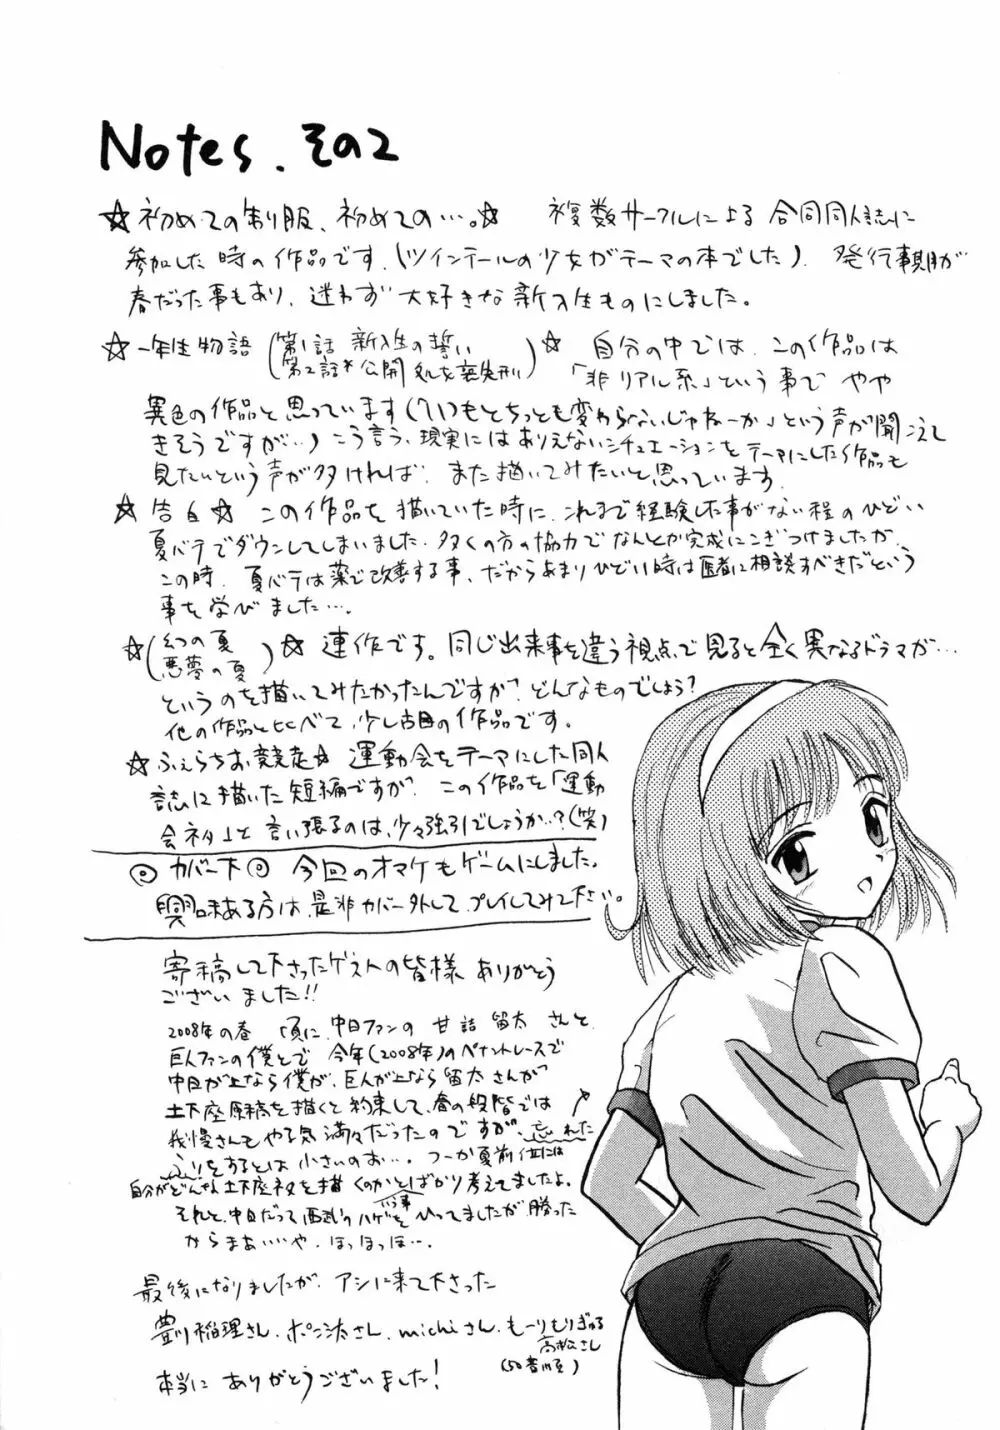 Notes. その2
☆初めての制服、初めての…。☆ 複数サークルによる 合同同人誌に
参加した時の作品です.(ツインテールの少女がテーマの本でした). 発行時期が
春だった事もあり、迷わず大好きな新入生ものにしました。
☆一年生物語 (第1話 新入生の誓い
第2話 公開処女喪失刑) ☆ 自分の中では、この作品は
「非リアル系」という事で やや
異色の作品と思っています(「いつもとちっとも変わらないじゃねーか」という声が聞こえて
きそうですが…) こう言う、現実にはありえないシチュエーションをテーマにした作品も
見たいという声が多ければ、また描いてみたいと思っています.
☆ 告白 ☆ この作品を描いていた時に、これまで経験した事がない程のひどい
夏バテでダウンしてしまいました. 多くの方の協力でなんとか完成にこぎつけましたが.
この時、夏バテは薬で改善する事、だからあまりひどい時は医者に相談すべきだという
事を学びました….
☆(幻の夏
悪夢の夏) ☆ 連作です。同じ出来事を違う視点で見ると全く異なるドラマが…
というのを描いてみたかったんですが、どんなものでしょう?
他の作品と比べて、少し古目の作品です。
☆ふぇらちお競走☆ 運動会をテーマにした同人
誌に描いた短編ですが、この作品を「運動
会ネタ」と言い張るのは、少々強引でしょうか…?(笑)
◎ カバー下◎ 今回のオマケもゲームにしました。
興味ある方は、是非カバー外して、プレイしてみて下さい。
寄稿して下さったゲストの皆様 ありがとう
ございました!!
2008年の春 頃に、中日ファンの 甘詰留太 さんと
巨人ファンの僕とで 今年(2008年)のペナントレースで
中日が上なら僕が、巨人が上なら留太さんが
土下座原稿を描くと約束して、春の段階では
我慢さんもやる気満々だったのですが、忘れた
ふりをするとは小さいのお…. つーか夏前位には
自分がどんな土下座ネタを描くのかとばかり考えてましたよ。
それと、中日だって西武の ひってましたが、勝った
からまあいいや. ほっほっほ….
最後になりましたが、アシに来て下さった
豊川稲理さん、ポン汰さん、michiさん、もーりもりぎゅる
高松さん
(50音順)
本当に ありがとうございました!